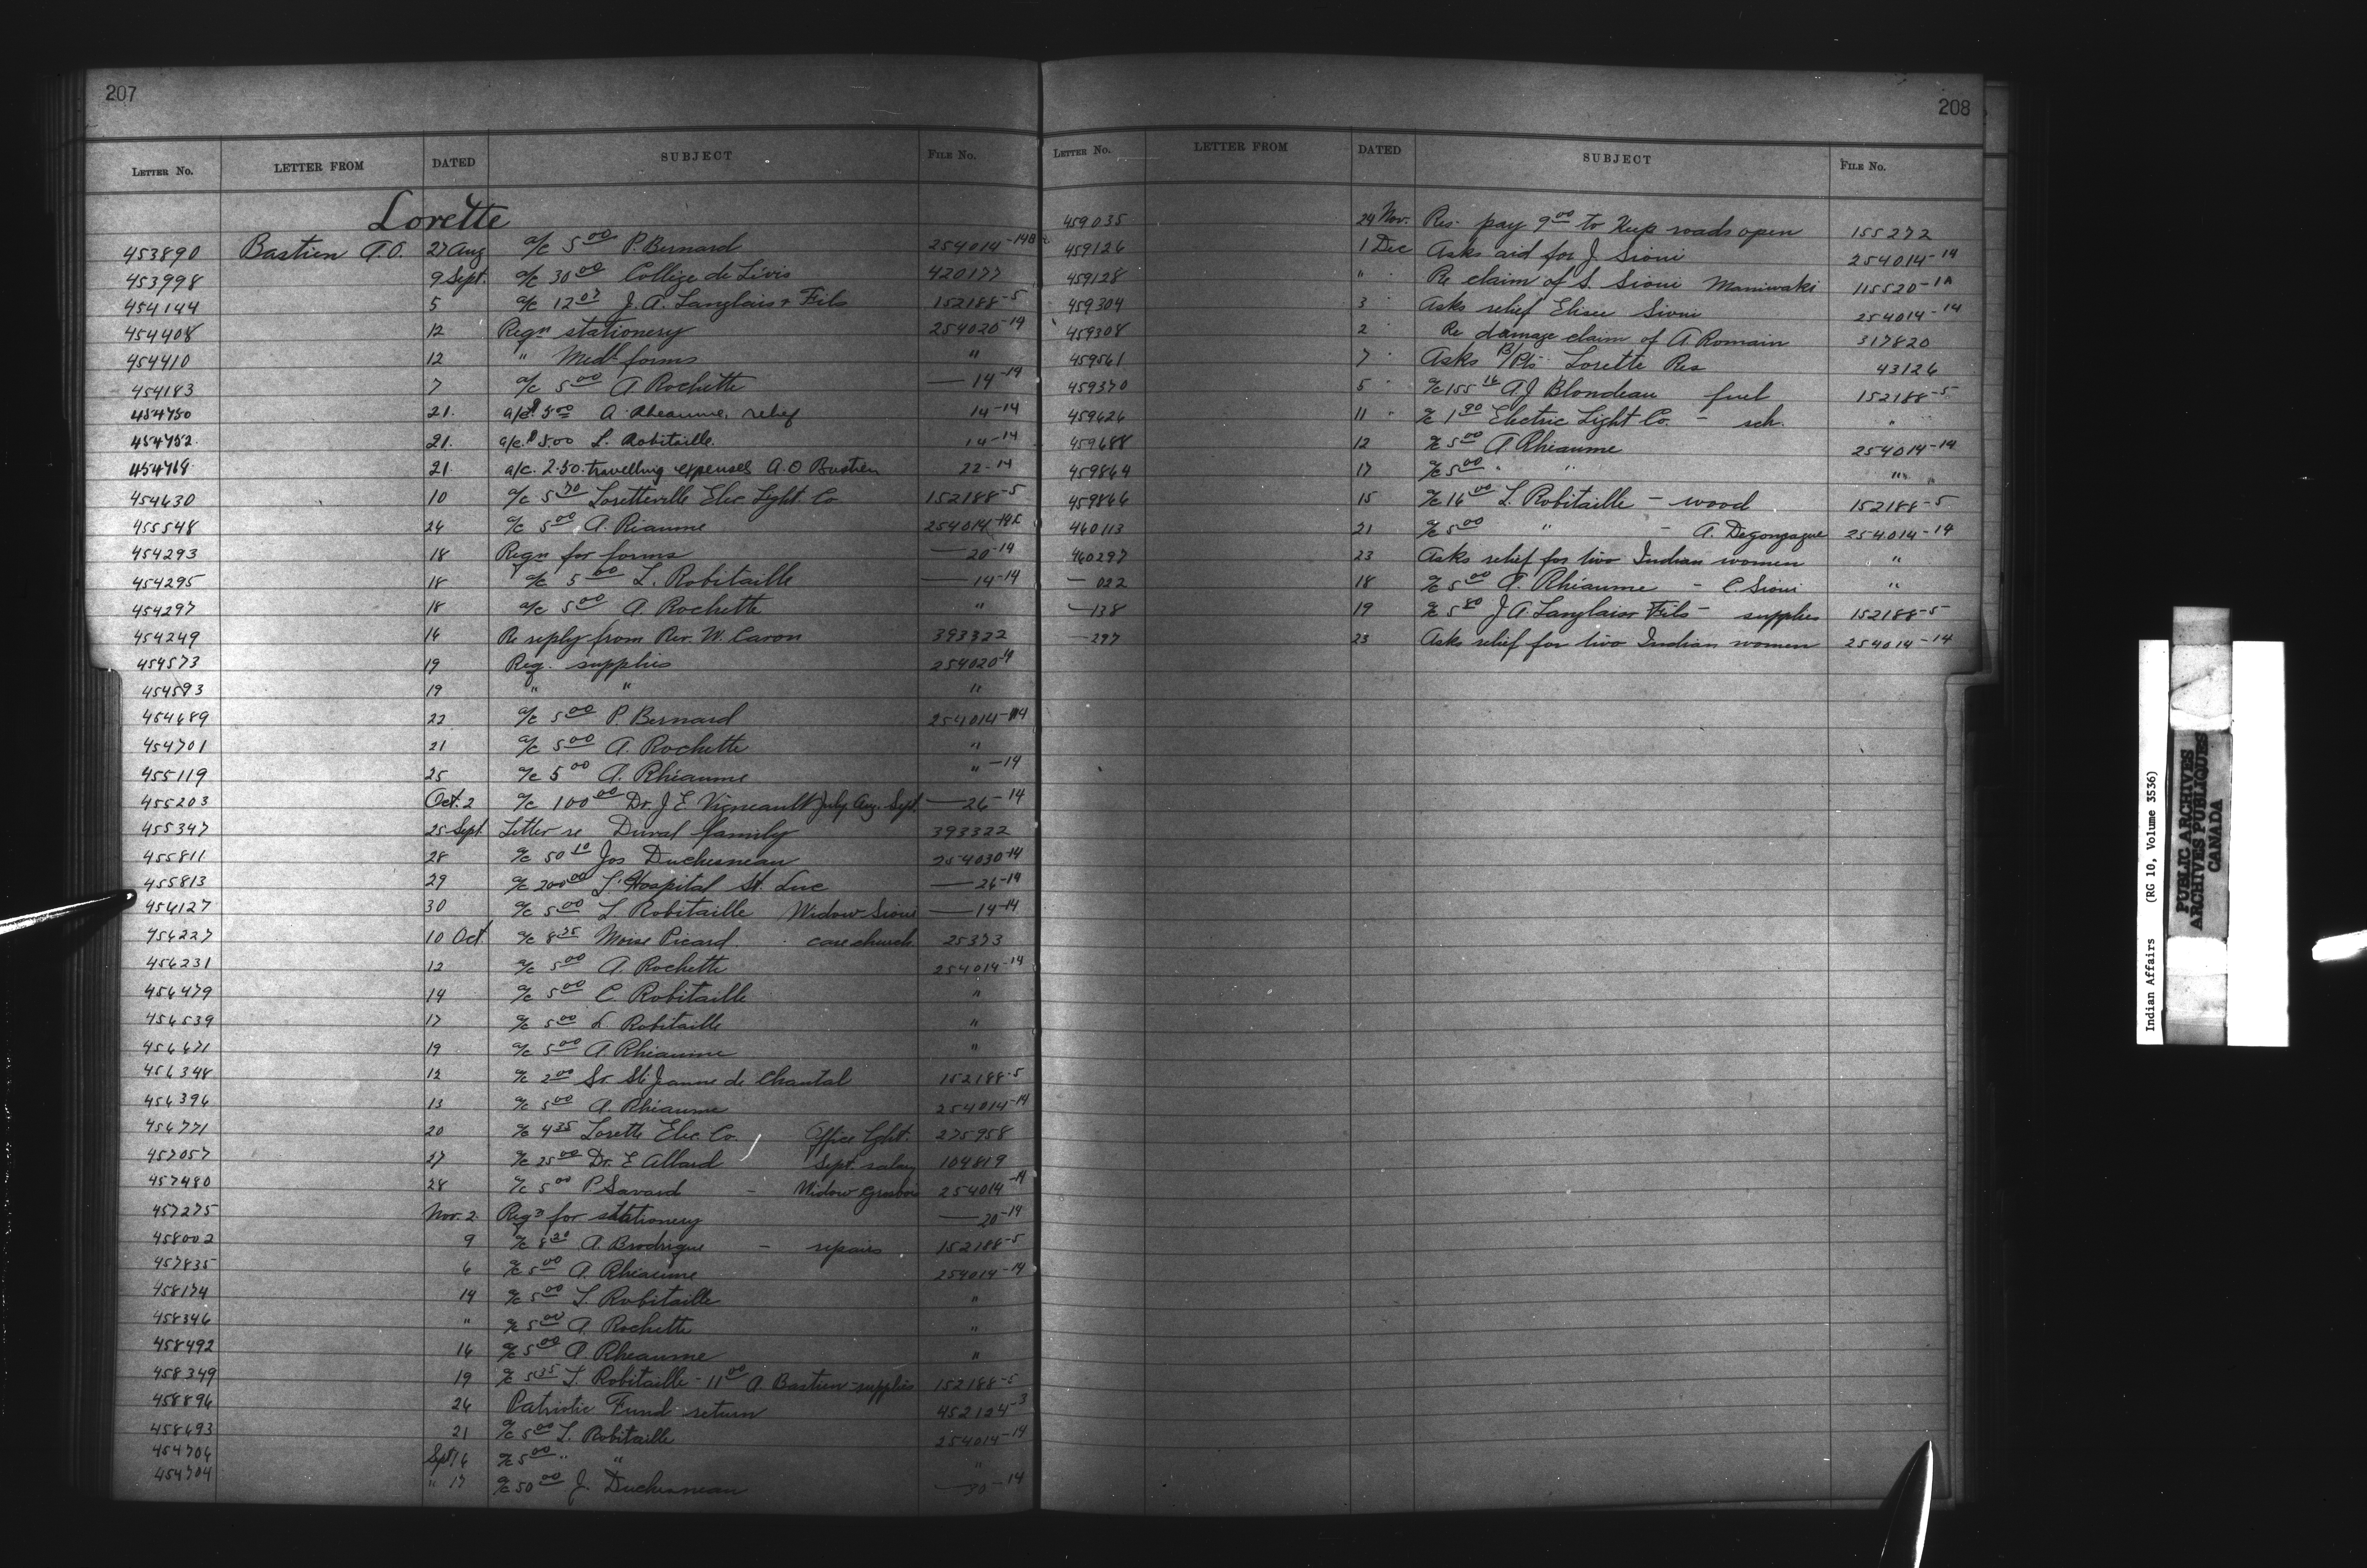 207
LETTER NO. LETTER FROM DATED SUBJECT FILE NO.
Lorette
453890 Bastien A.O. 27 Aug a/c 5.00 P. Bernard 254014-14B
453998 9 Sept. a/c 30.00 Collége de Lévis 420177
454144 5 a/c 12.07 J. A. Langlais & Fils 152188-5
454408 12 Reqn stationery 254020-14
454410 12 " Medl forms "
454183 7 a/c 5.00 A Rochette — 14-14
454750 21. a/c $5.00 A. Rheaume, relief 14-14
454752. 21. a/c $5.00 L. Robitaille. 14-14
454769 21. a/c. 2.50. travelling expenses A.O Bastien 22-14
454630 10 a/c 5.70 Loretteville Elec Light Co 152188-5
455548 24 a/c 5.00 A. Riaume 254014-14
454293 18 Reqn for forms — 20-14
454295 18 a/c 5.00 L. Robitaille — 14-14
454297 18 a/c 5.00 A Rochette "
454249 16 Re reply from Rev. W. Caron 393322
454573 19 Req. supplies 254020-14
454593 19 " " "
454689 22 a/c 5.00 P. Bernard 254014-14
454701 21 a/c 5.00 A. Rochette "
455119 25 a/c 5.00 A. Rhéaume " -14
455203 Oct. 2 a/c 100.00 Dr. J E Vigneault July Aug. Sept. — 26-14
455347 25 Sept Letter re Duval family 393322
455811 28 a/c 50.10 Jos Duchesneau 254030-14
455813 29 a/c 200.00 L'Hospital St. Luc — 26-14
456127 30 a/c 5.00 L Robitaille Widow Sioui — 14-14
456227 10 Oct. a/c 8.25 Moise Picard. care church 25373
456231 12 a/c 5.00 A. Rochette 254014-14
456479 14 a/c 5.00 C. Robitaille "
456539 17 a/c 5.00 L. Robitaille "
456671 19 a/c 5.00 A Rhéaume "
456348 12 a/c 2.00 Sr. Ste Jeanne de Chantal 152188-5
456396 13 a/c 5.00 A. Rhéaume 254014-14
456771 20 a/c 4.35 Lorette Elec. Co. Office lght. 275958
457057 27 a/c 25.00 Dr. E Allard Sept. salary 104819
457480 28 a/c 5.00 P Savard - Widow Grosbois 254014-14
457275 Nov. 2. Reqn for stationery — 20-14
458002 9 a/c 8.20 A. Brodrigue - repairs 152188-5
457835 6 a/c 5.00 A. Rhéaume 254014-14
458174 14 a/c 5.00 L. Robitaille "
458346 " a/c 5.00 A. Rochette "
458492 16 a/c 5.00 A. Rheaume "
458349 19 a/c 5.35 L. Robitaille - 11.00 A. Bastien - supplies 152188-5
458896 26 Patriotic Fund return 452124-3
458693 21 a/c 5.00 L. Robitaille 254014-14
454706 Sept 16 a/c 5.00 " " "
454704 " 17 a/c 50.00 J. Duchesneau — 30-14
208
LETTER NO. LETTER FROM DATED SUBJECT FILE NO.
459035 24 Nov. Res. pay 9.00 to keep roads open 155272
459126 1 Dec Asks aid for J. Sioui 254014-14
459128 " Re claim of S. Sioui Maniwaki 115520-1A
459304 3 Asks relief Elisee Sioui 254014-14
459308 2 Re damage claim of A. Romain 317820
459561 7 Asks B/Pts Lorette Res 43126
459370 5 a/c 155.16 A J Blondeau fuel 152188-5
459626 11 " a/c 1.90 Electric Light Co. - sch. "
459688 12 a/c 5.00 A Rhéaume 254014-14
459864 17 a/c 5.00 " " "
459866 15 a/c 16.00 L. Robitaille - wood 152188-5
460113 21 a/c 5.00 " - A. Degonzague 254014-14
460297 23 Asks relief for two Indian women "
— 022 18 a/c 5.00 A. Rhéaume - C. Sioui "
— 138 19 a/c 5.80 J A. Langlais & Fils - supplies 152188-5
— 297 23 Asks relief for two Indian women 254014-14
Indian Affairs (RG 10, Volume 3536)
PUBLIC ARCHIVES
ARCHIVES PUBLIQUES
CANADA